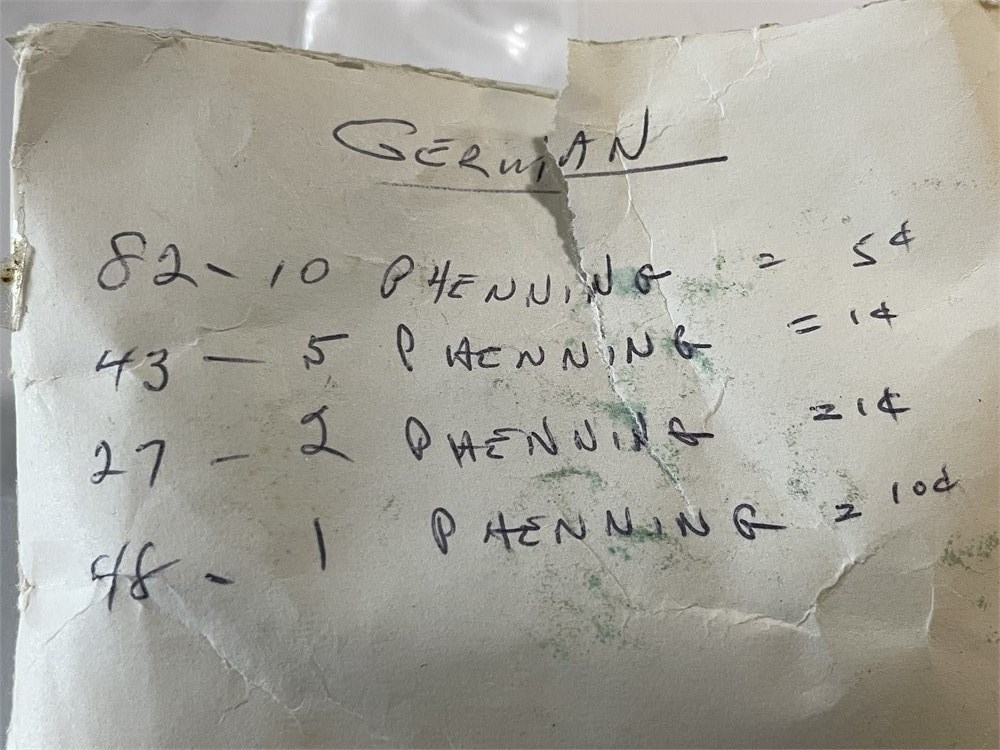 GERMAN
82 - 10 PHENNING = 5¢
43 - 5 PHENNING = 1¢
27 - 2 PHENNING = 1¢
48 - 1 PHENNING = 10¢